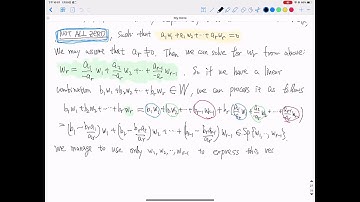 NOT ALL ZERO, such that a₁w₁+a₂w₂+⋯+aᵣwᵣ=0
We may assume that aᵣ≠0. Then we can solve for wᵣ from above:
wᵣ = a₁/-aᵣ w₁ + a₂/-aᵣ w₂ + ⋯ + aᵣ₋₁/-aᵣ wᵣ₋₁. So if we have a linear
combination b₁w₁+b₂w₂+⋯+bᵣwᵣ ∈ W, we can process it as follows
b₁w₁+b₂w₂+⋯+bᵣwᵣ =
= (b₁ - bᵣa₁/aᵣ) w₁ + (b₂ - bᵣa₂/aᵣ) w₂ + ⋯ + (bᵣ₋₁ - bᵣaᵣ₋₁/aᵣ) wᵣ₋₁ ∈ Sp{w₁,⋯,wᵣ₋₁}.
We manage to use only w₁, w₂,⋯, wᵣ₋₁ to express this res